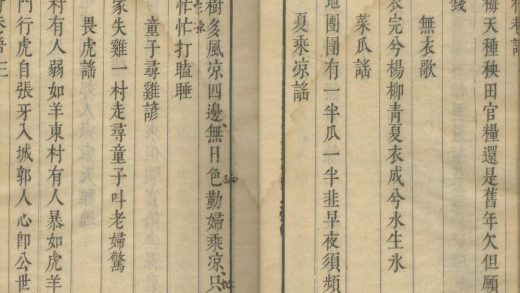 梅天種秧田官糧還是舊年欠但願
錢
無衣歌
衣完兮楊柳青夏衣成兮水生氷
菜瓜謡
地團團有一半瓜一半韭早夜須頻
夏乘凉謡
樹多風凉四邊無日色勤婦乘凉只
忙忙打瞌睡
童子尋雞諺
家失雞一村走尋童子呌老婦驚
畏虎謡
村有人弱如羊東村有人暴如虎羊
門行虎自張牙入城郭人心卽公世